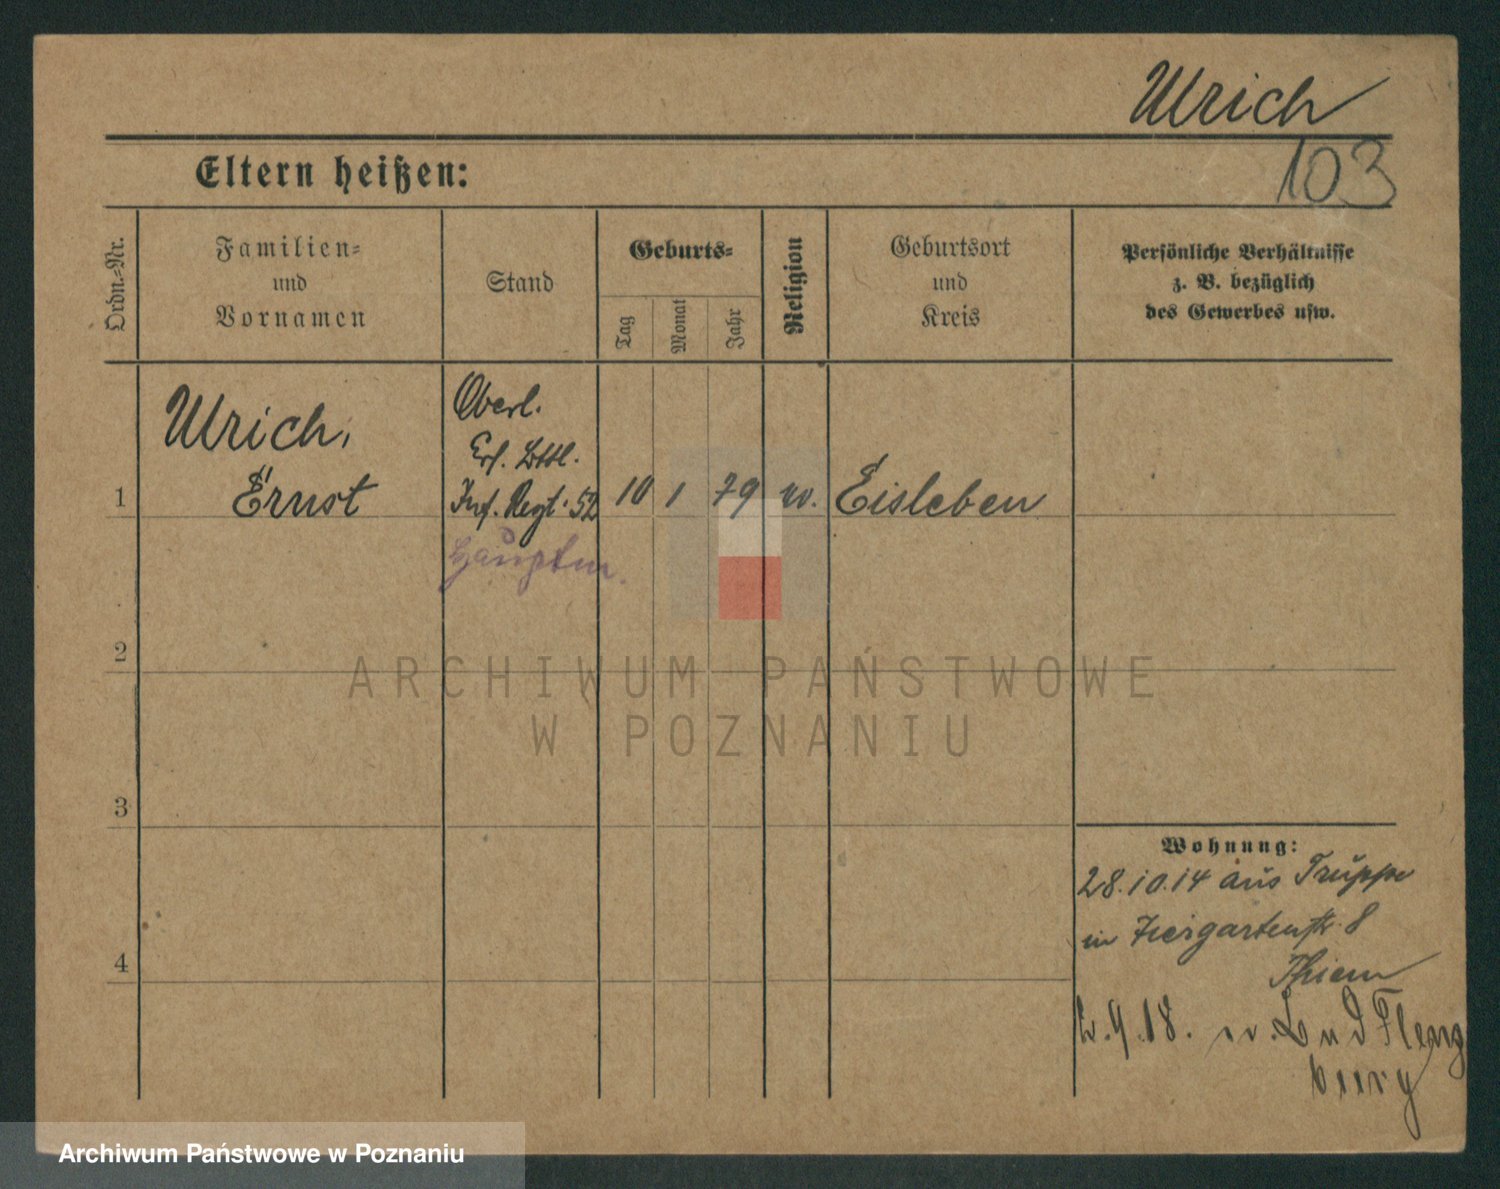 Ulrich
103
Eltern heißen:
Ordn.-Nr.
Familien-
und
Vornamen
Stand
Geburts-
Tag
Monat
Jahr
Religion
Geburtsort
und
Kreis
Persönliche Verhältnisse
z. B. bezüglich
des Gewerbes usw.
Ulrich,
Ernst
Oberl.
Ers. Btl.
Inf. Regt. 52
Hauptm.
1
10 1 79
Eisleben
2
3
4
Wohnung:
28.10.14 aus Truppe
in Tiergartenstr. 8
Thiem
9.18.
ARCHIWUM PAŃSTWOWE
W POZNANIU
Archiwum Państwowe w Poznaniu